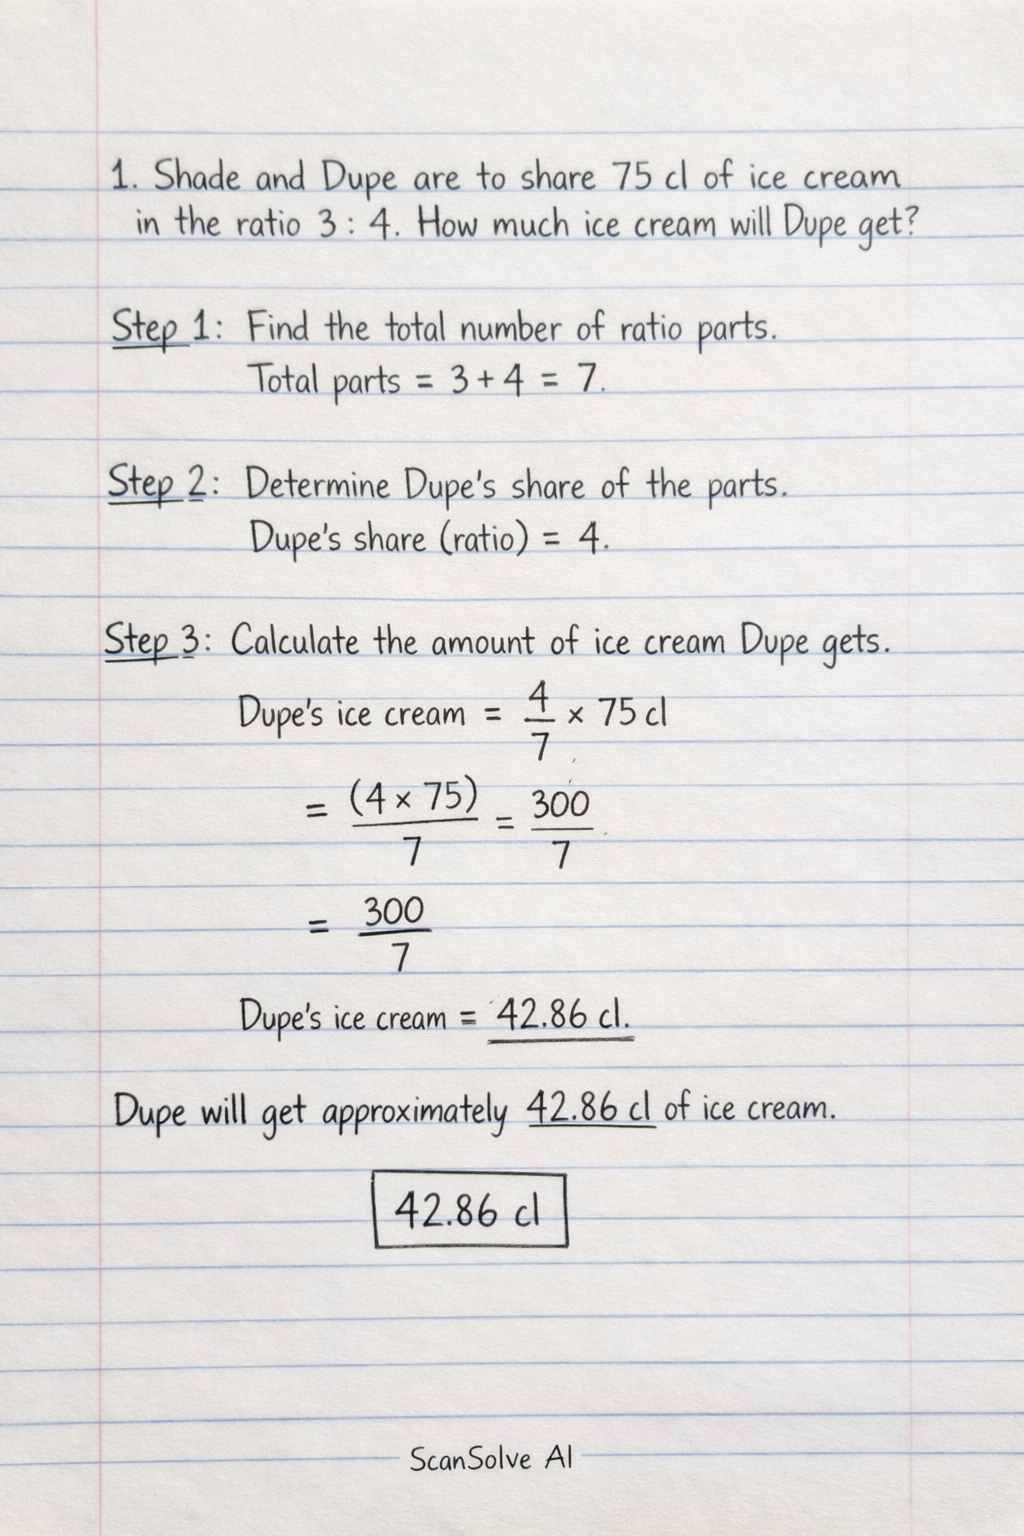 1. Shade and Dupe are to share 75 cl of ice cream
in the ratio 3 : 4. How much ice cream will Dupe get?
Step 1: Find the total number of ratio parts.
Total parts = 3 + 4 = 7.
Step 2: Determine Dupe's share of the parts.
Dupe's share (ratio) = 4.
Step 3: Calculate the amount of ice cream Dupe gets.
Dupe's ice cream = 4/7 × 75 cl
= (4 × 75)/7 = 300/7
= 300/7
Dupe's ice cream = 42.86 cl.
Dupe will get approximately 42.86 cl of ice cream.
42.86 cl
ScanSolve AI